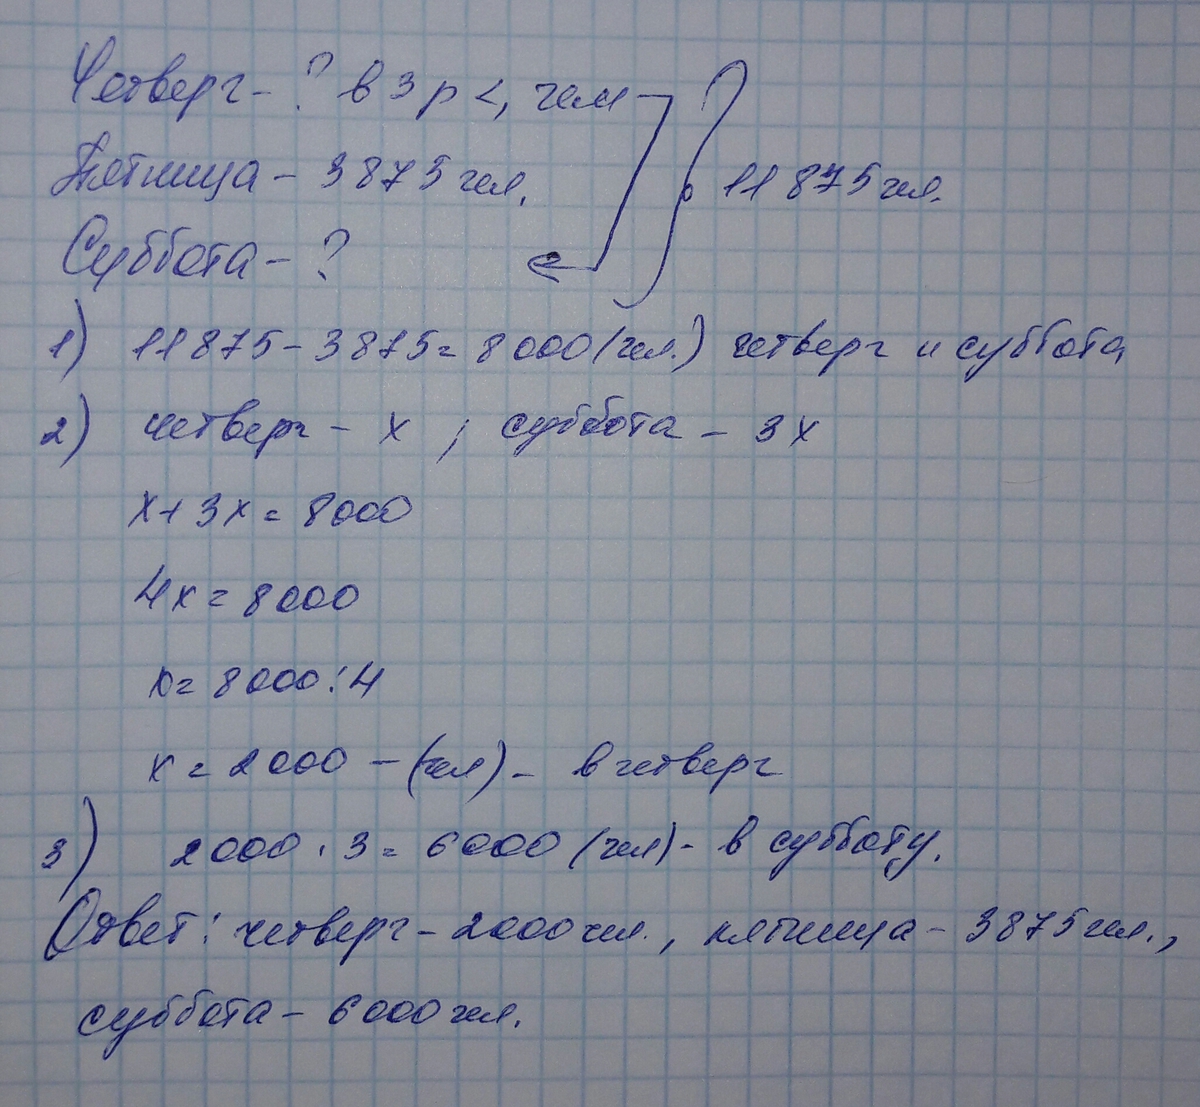 Четверг - ? в 3 р <, чем
Пятница - 3875 чел.
11 875 чел.
Суббота - ?
1) 11875 - 3875 = 8000 (чел.) четверг и суббота
2) четверг - x ; суббота - 3x
x + 3x = 8000
4x = 8000
x = 8000 : 4
x = 2000 - (чел) - в четверг
3) 2000 · 3 = 6000 (чел) - в субботу.
Ответ: четверг - 2000 чел., пятница - 3875 чел.,
суббота - 6000 чел.